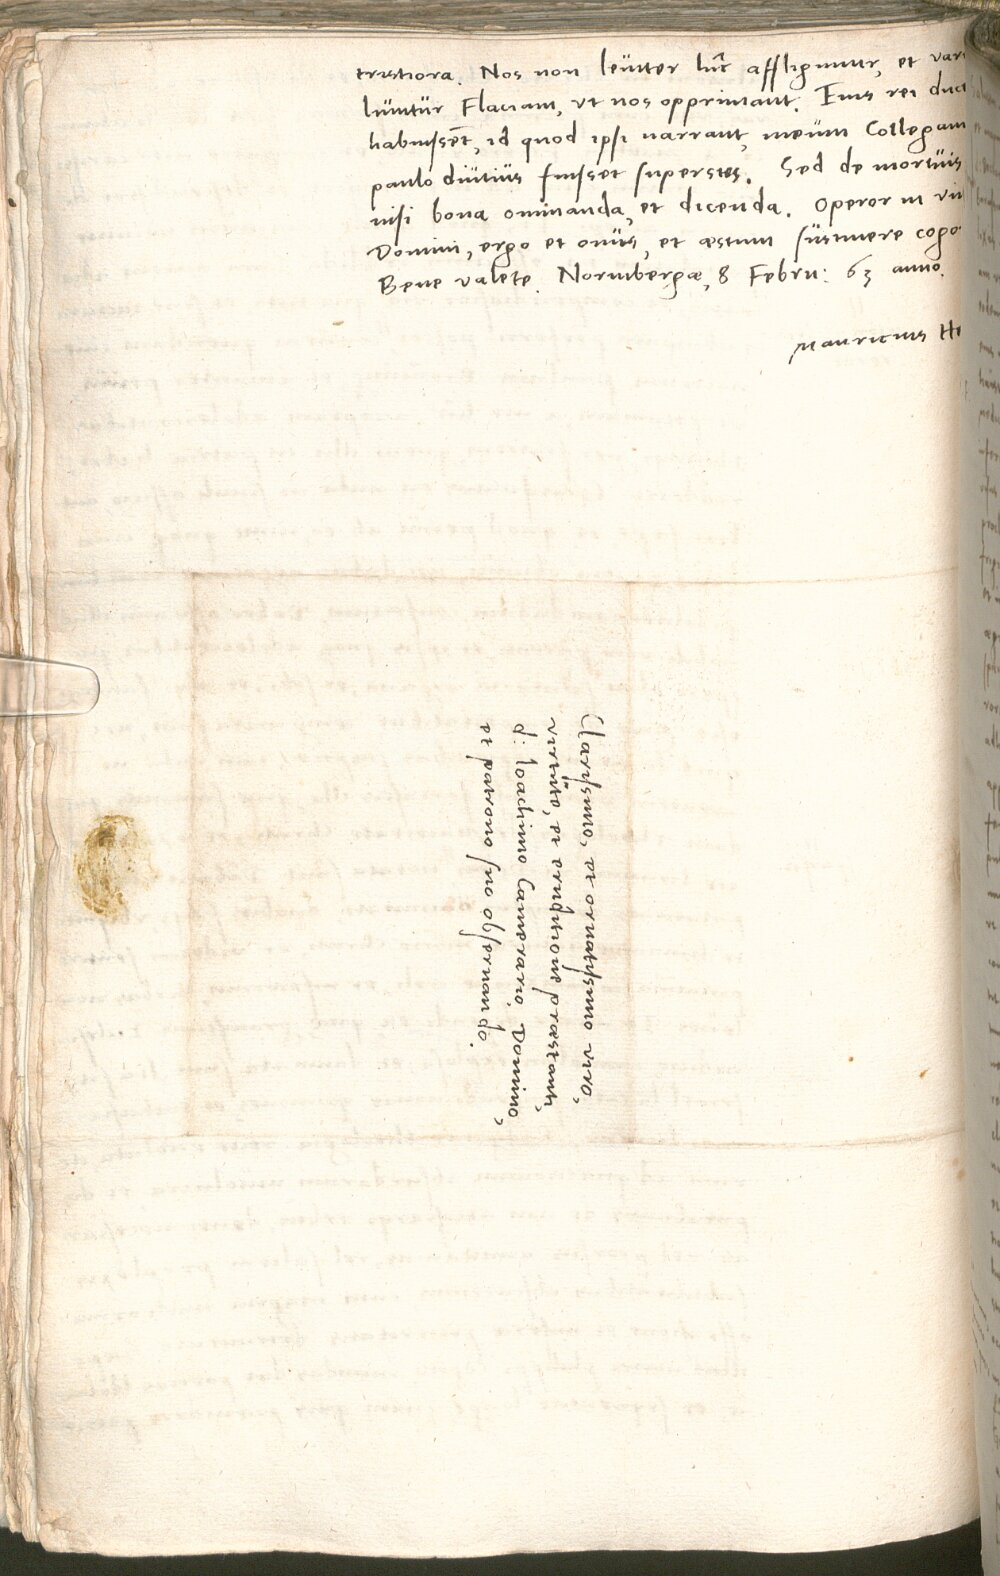 tristiora. Nos non leuiter hic affligimur, et vari
luntur Flaciani, vt nos opprimant. Eius rei duct
habuissēt, id quod ipsi narrant, meum Collegam
paulo diutius fuisset superstes. Sed de mortuis
nisi bona ominanda, et dicenda. Operor in vin
Domini, ergo et onus, et æstum sustinere cogo
Bene valete. Noribergæ, 8 Febru: 63 anno.
Mauricius He
Clarissimo, et ornatissimo viro,
virtute, et eruditione præstanti,
d: Ioachimo Camerario, Domino,
et patrono suo obseruando.